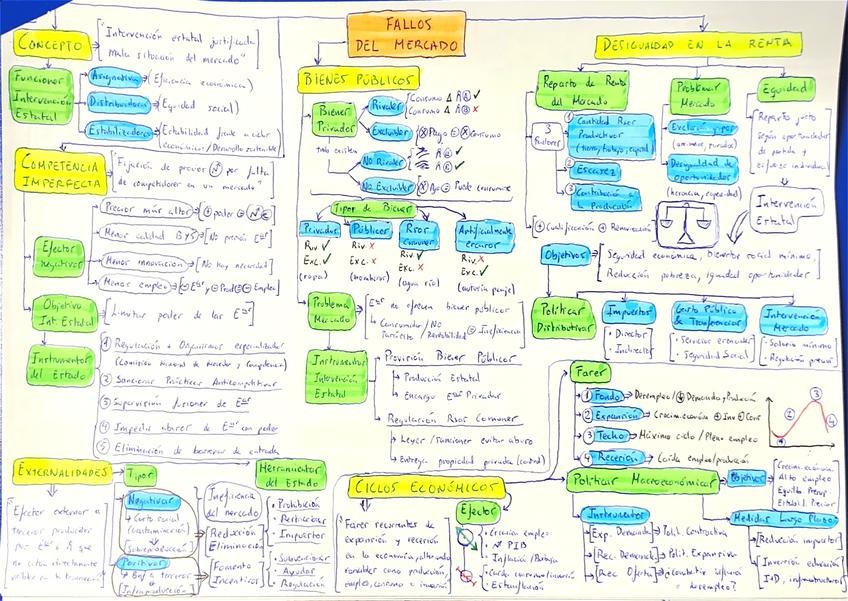 FALLOS
DEL MERCADO
CONCEPTO
"Intervención estatal justificada
mala situación del mercado"
Funciones
Intervención
Estatal
Asignativa
(Eficiencia económica)
Distributiva
(Equidad social)
Estabilizadora
(Estabilidad frente a ciclos
económicos/Desarrollo sostenible)
COMPETENCIA
IMPERFECTA
"Fijación de precios
por falta
de competidores en un mercado"
Efectos
negativos
Precios más altos
poder
Menor calidad ByS
Menor innovación
[No hay necesidad]
Menor empleo
Objetivo
Int. Estatal
[Limitar poder de las
Instrumentos
del Estado
① Regulación + Organismos especializados
(Comisión Nacional de Mercados y Competencia)
② Sancionar Prácticas Anticompetitivas
③ Supervisión fusiones de
④ Impedir abusos de
con poder
⑤ Eliminación de barreras de entrada
EXTERNALIDADES
"Efectos externos a
terceros producidos
no están directamente
Tipos
Negativas
Costo social
(contaminación)
Sobreproducción
Positivas
a terceros
Infraproducción
Ineficiencia
del mercado
Reducción
Eliminación
Fomento
Incentivos
Herramientas
del Estado
· Prohibición
· Restricciones
· Impuestos
· Subvenciones
· Ayudas
· Regulación
BIENES PÚBLICOS
Bienes
Privados
Rivales
Consumo
Consumo
Excluibles
Pago
Consumo
No Rivales
No Excluibles
Pago
Puede consumirse
Tipos de Bienes
Privados
Riv. ✓
Exc. ✓
(ropa)
Públicos
Riv. ✗
Exc. ✗
(bomberos)
Rsos
comunes
Riv. ✓
Exc. ✗
(agua río)
Artificialmente
escasos
Riv. ✗
Exc. ✓
(autopista peaje)
Problema
Mercado
no ofrecen bienes públicos
Consumidor/No
Rentabilidad
Ineficiencia
Instrumentos
Intervención
Estatal
Provisión Bienes Públicos
Producción Estatal
Encargo
Privadas
Regulación Rsos Comunes
Leyes/sanciones evitar abuso
Entrega propiedad privada (control)
CICLOS ECONÓMICOS
"Fases recurrentes de
expansión y recesión
en la economía, alterando
variables como producción,
empleo, consumo e inversión"
Efectos
· Creación empleo
· PIB
· Inflación/Burbuja
· Caída consumo/inversión
DESIGUALDAD EN LA RENTA
Reparto de Renta
del Mercado
3
Factores
① Cantidad Rsos
Productivos
(tierra, trabajo, capital)
② Escasez
③ Contribución a
la Producción
+ Cualificación + Remuneración
Problemas
Mercado
Exclusión por
Desigualdad de
oportunidades
(herencia, capacidad)
Equidad
Reparto justo
según oportunidades
de partida y
esfuerzo individual
Intervención
Estatal
Objetivos
Seguridad económica, bienestar social mínimo,
Reducción pobreza, igualdad oportunidades
Políticas
Distributivas
Impuestos
· Directos
· Indirectos
Gasto Público
& Transferencias
· Servicios esenciales
· Seguridad Social
Intervención
Mercado
· Salario mínimo
· Regulación precios
Fases
① Fondo
Desempleo/
Demanda y Producción
② Expansión
Crecim. económ.
③ Techo
Máximo ciclo/Pleno empleo
④ Recesión
Caída empleo/producción
①
②
③
④
Políticas Macroeconómicas
Objetivos
Crecim. económ.
Alto empleo
Equilib. Presup.
Estabil. Precios
Instrumentos
Exp. Demanda
Polít. Contractiva
Rec. Demanda
Polít. Expansiva
Rec. Oferta
desempleo?
Medidas Largo Plazo
Reducción impuestos
Inversión educación
I+D, infraestructuras